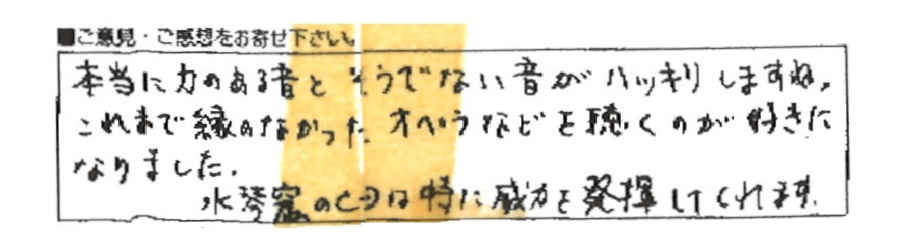 ■ご意見・ご感想をお寄せ下さい。
本当に力のある音とそうでない音がハッキリしますね。
これまで縁のなかったオペラなどを聴くのが好きに
なりました。
水琴窟のCDは特に威力を発揮してくれます。